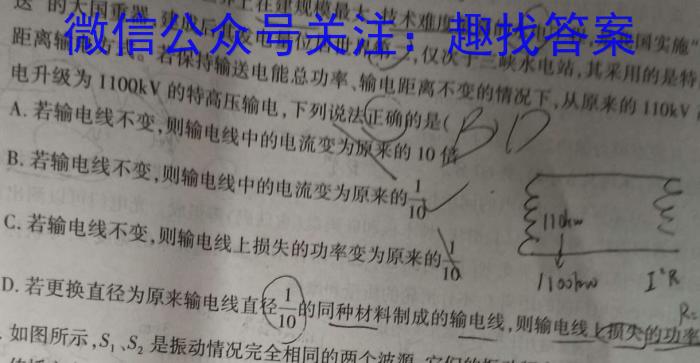 送"的大国重器
上在建规模最大、技术难度
国实施"
微信公众号关注：趣找答案
,仅次于三峡水电站,其采用的是特
距离输
若保持输送电能总功率、输电距离不变的情况下,从原来的110kV
电升级为1100kV的特高压输电,下列说法正确的是( BD
A. 若输电线不变,则输电线中的电流变为原来的10倍
B. 若输电线不变,则输电线中的电流变为原来的1/10
C. 若输电线不变,则输电线上损失的功率变为原来的1/10
110kw
1100kw
I²R
R=
D. 若更换直径为原来输电线直径1/10的同种材料制成的输电线,则输电线上损失的功率
如图所示,S₁、S₂是振动情况完全相同的两个波源